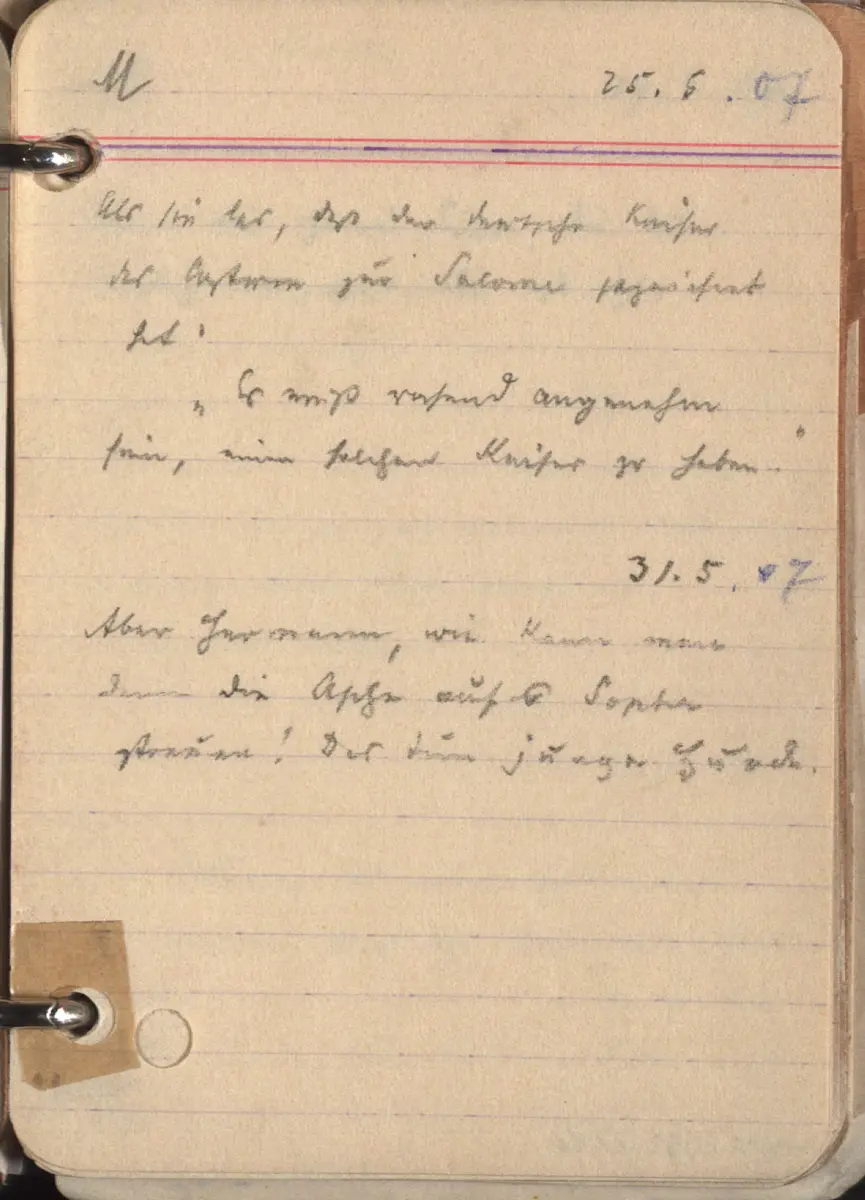 M 25. 6. 07
Als sie las, daß der deutsche Kaiser
das Costum zur Salome gezeichnet
hat:
„Es muß rasend angenehm
sein, einen solchen Kaiser zu haben."
31. 5. 07
Aber Hermann, wie kann man
denn die Asche aufs Sopha
streuen! Das tun junge Hunde.